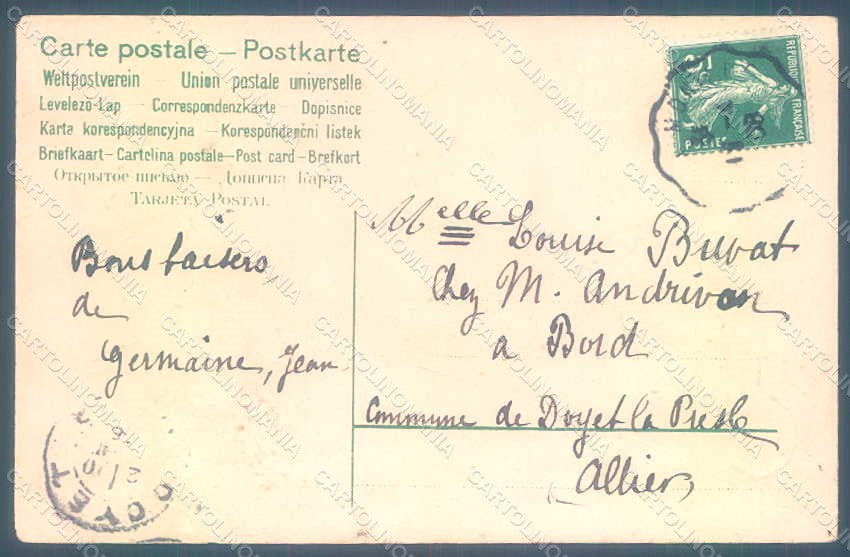 Carte postale — Postkarte
Weltpostverein — Union postale universelle
Levelező-Lap — Correspondenzkarte — Dopisnice
Karta korespondencyjna — Korespondenční listek
Briefkaart — Cartolina postale — Post card — Brefkort
Открытое письмо — Дописна Карта
TARJETA POSTAL
REPUBLIQUE FRANÇAISE
POSTES
Melle Louise Buvat
Chez M. Andrivon
a Bord
Commune de Doyet la Presle
(Allier)
Bons baisers
de
Germaine, Jean
DOYET
CARTOLINOMANIA